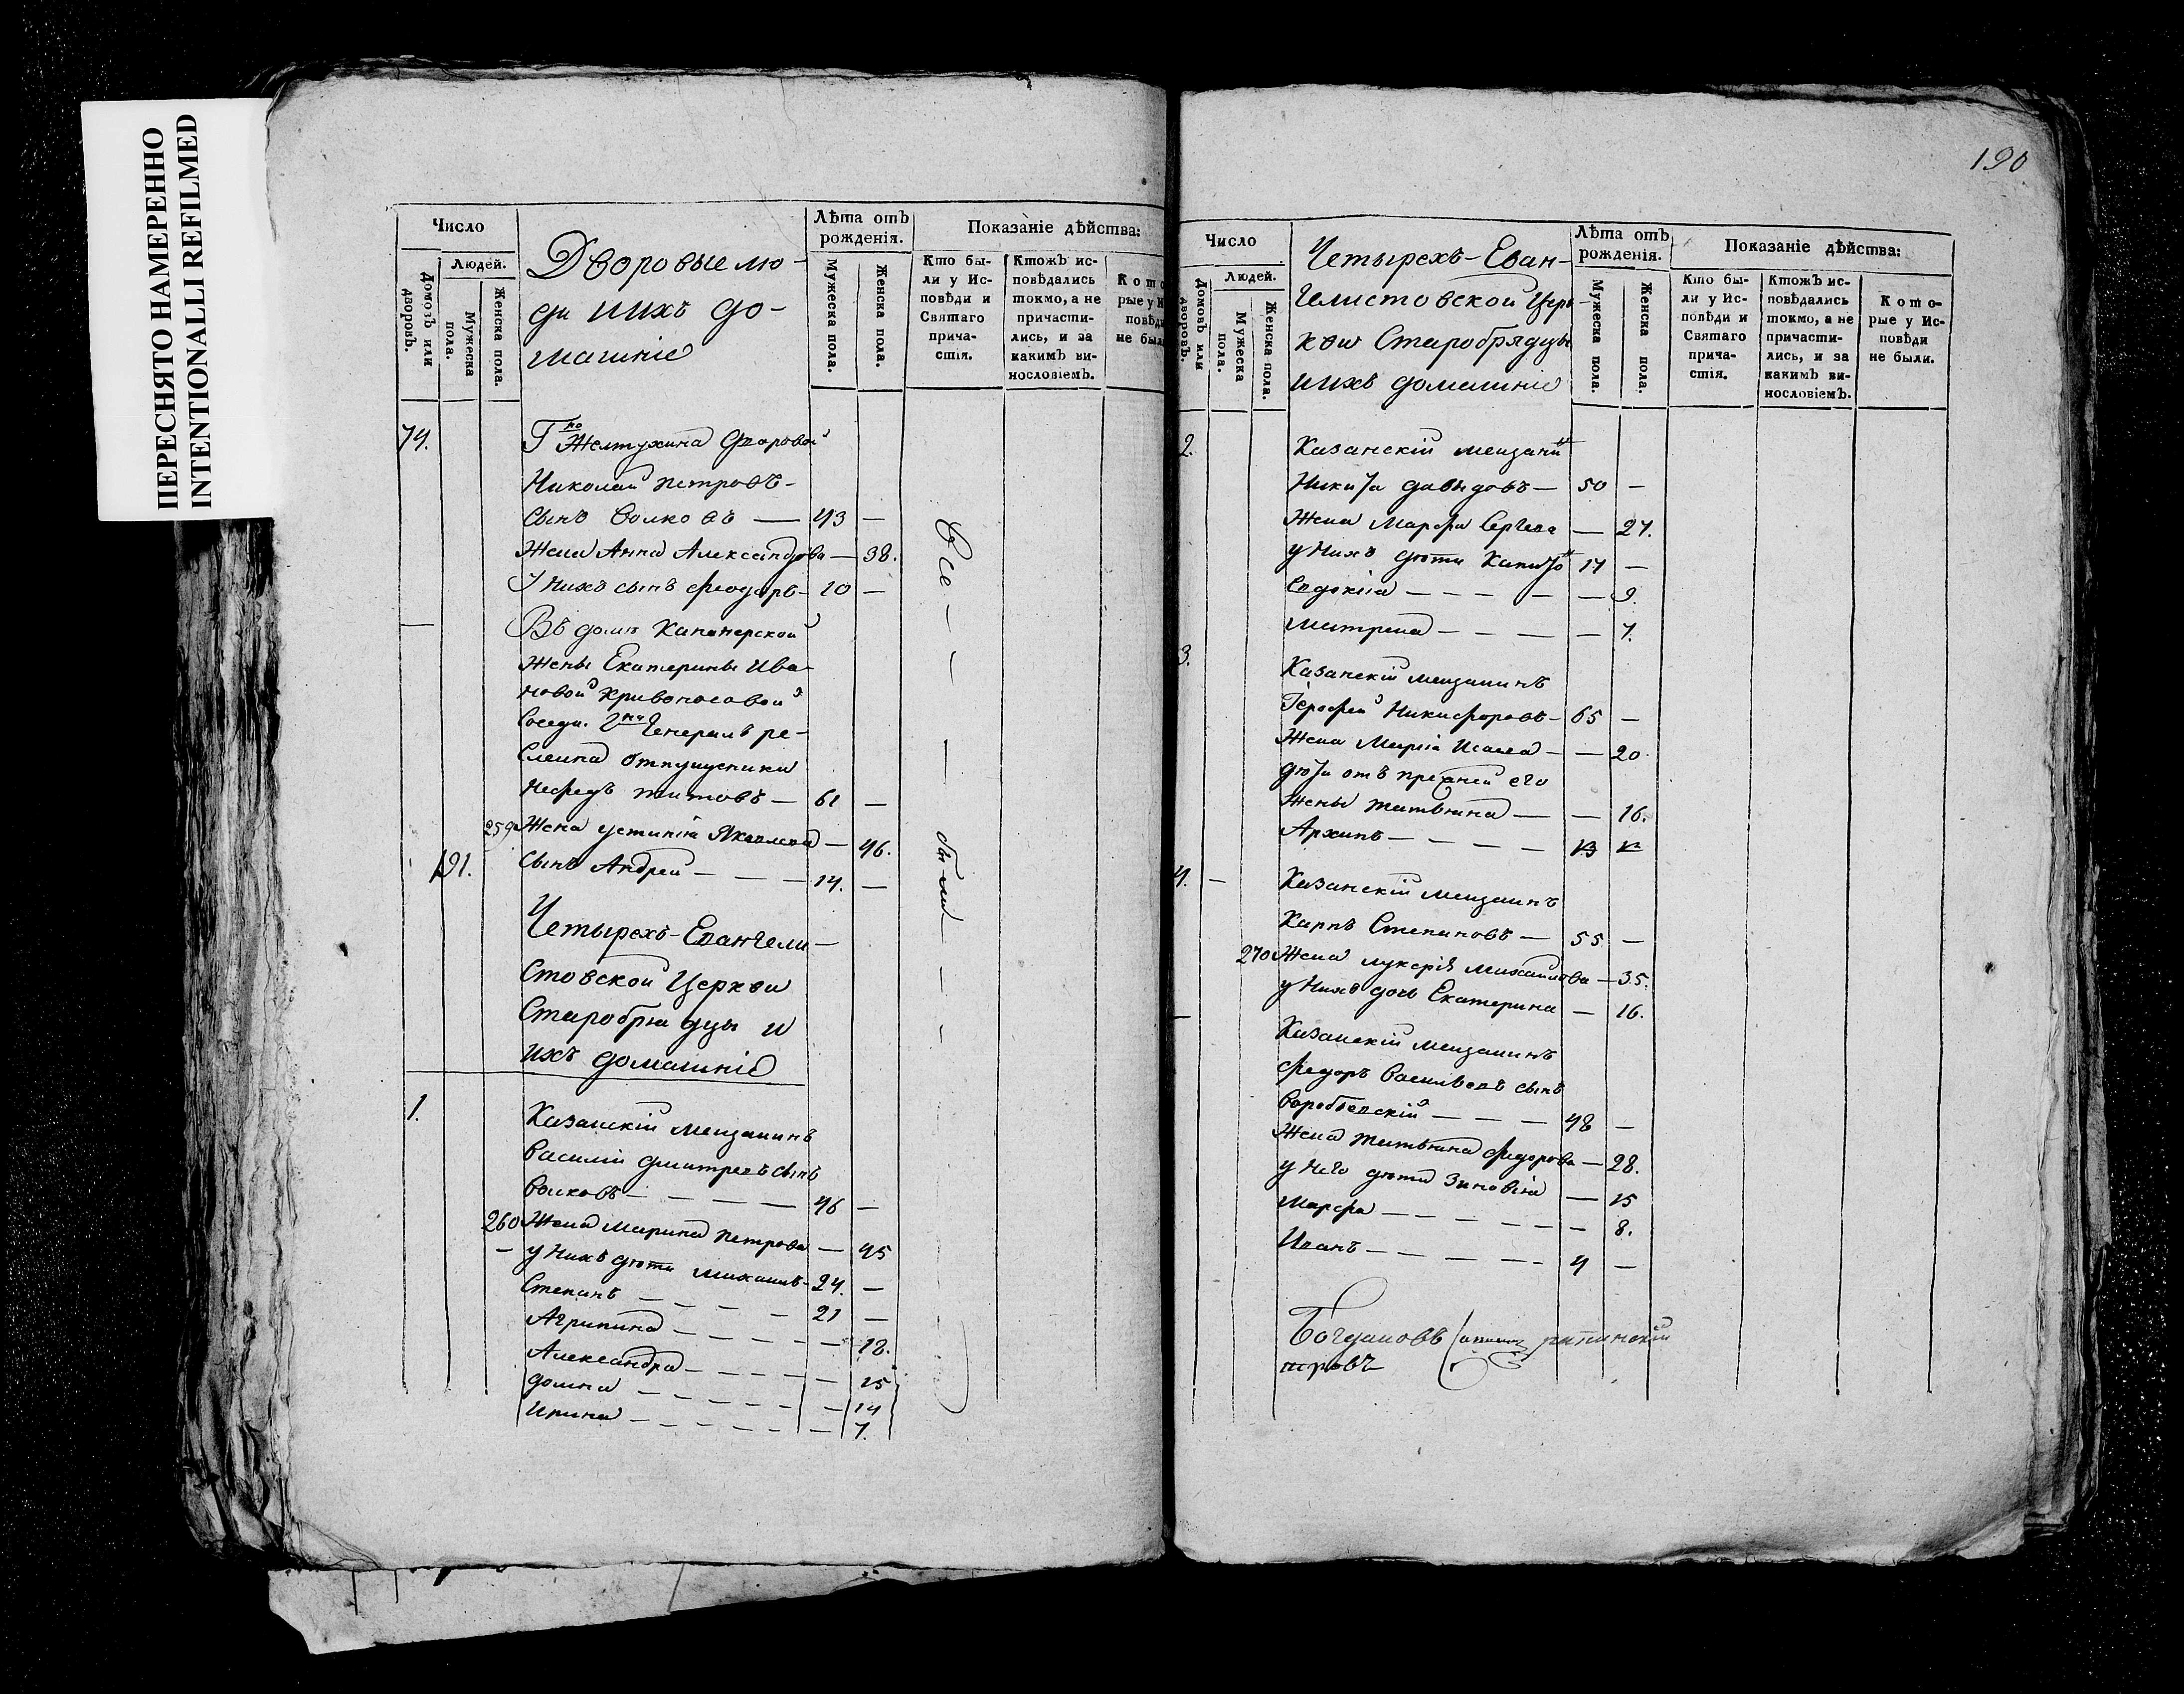 ПЕРЕСНЯТО НАМЕРЕННО
INTENTIONALLI REFILMED
Число
Людей.
Домовъ или дворовъ.
Мужеска пола.
Женска пола.
Дворовые лю-
ди ихъ до-
машніе
Лѣта отъ рожденія.
Мужеска пола.
Женска пола.
Показаніе дѣйства:
Кто бы-
ли у Ис-
повѣди и
Святаго
прича-
стія.
Ктожъ ис-
повѣдались
токмо, а не
причасти-
лись, и за
какимъ ви-
нословіемъ.
Кото
рые у И
повѣди
не были
74. Гно Желтухина
Николай Петровъ-
сынъ Волковъ — 43 —
Жена Анна Александрова — 38.
У нихъ сынъ Феодоръ- 10 —
Въ домѣ
жены Екатерины Ива-
новой Кривоносовой
Генералъ ре-
отпущеники
Титовъ — 61 —
259 Жена Устинія Яковлева — 46.
191. сынъ Андрей - — — 14. —
Все — были
Четырехъ-Евангели-
стовской Церкви
Старобрядцы и
ихъ домашніе
1. Казанскій мещанинъ
Василій Дмитревъ сынъ
Волковъ - — — — 46 —
260 Жена Марина Петрова — 45
- у нихъ дѣти Михаилъ- 24. —
Степанъ — — — — 21 —
Агрипина — — — — - 18.
Александра - — — — — 15
Домна — — — — — 14
Ирина — — — — — 7.
190
Число
Людей.
Домовъ или дворовъ.
Мужеска пола.
Женска пола.
Четырехъ-Еван-
гелистовской Цер-
кви Старобрядцы
ихъ домашніе
Лѣта отъ рожденія.
Мужеска пола.
Женска пола.
Показаніе дѣйства:
Кто бы-
ли у Ис-
повѣди и
Святаго
прича-
стія.
Ктожъ ис-
повѣдались
токмо, а не
причасти-
лись, и за
какимъ ви-
нословіемъ.
Кото-
рые у Ис-
повѣди
не были.
2. Казанскій мещанинъ
Никита Давыдовъ — 50 —
Жена Марфа Сергева — 27.
у нихъ дѣти 17 —
Евдокіа — — — — — 9.
Матрена — — — — — 7.
3. Казанскій мещанинъ
Никифоровъ- 65 —
Жена Маріа Исаева — — 20
дѣти отъ прежней его
жены Татьяна — — 16.
Архипъ — — — — 13
4. — Казанскій мещанинъ
Карпъ Степановъ — 55 —
270 Жена Лукеріа Михаилова — 35.
у нихъ дочь Екатерина — 16.
— Казанскій мещанинъ
Федоръ Васильевъ сынъ
Воробьевскій — — — 48 —
Жена Татьяна Федорова — 28.
у него дѣти Зиновіа — 15
Марфа — — — — - 8.
Иванъ — — — — 4 —